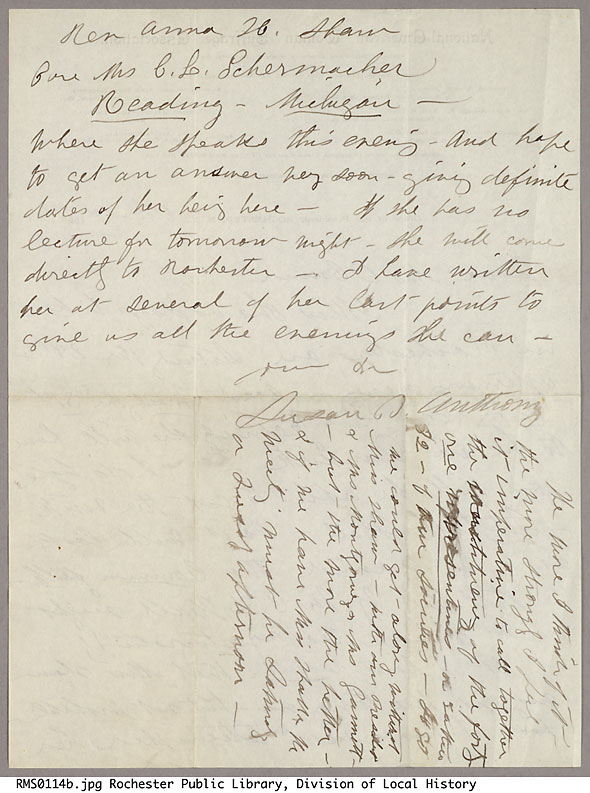 Rev Anna H. Shaw
Care Mrs C. L. Schermacher
Reading - Michigan -
Where she speaks this evening - And hope
to get an answer very soon - giving definite
dates of her being here - If she has no
lecture for tomorrow night - she will come
directly to Rochester - I have written
her at several of her last points to
give us all the evenings she can -
Susan B. Anthony
The more I think of it -
the more strongly I feel
it imperative to call together
the constituency of the forty
one representatives - or rather
32 - of their Societies -
we could get - along without
Miss Shaw - with our
& Mrs Montgomery & Mrs Gannett -
- but the more the better -
& if we have Miss Shaw the
meeting must be Saturday
or Sunday afternoon -
RMS0114b.jpg Rochester Public Library, Division of Local History